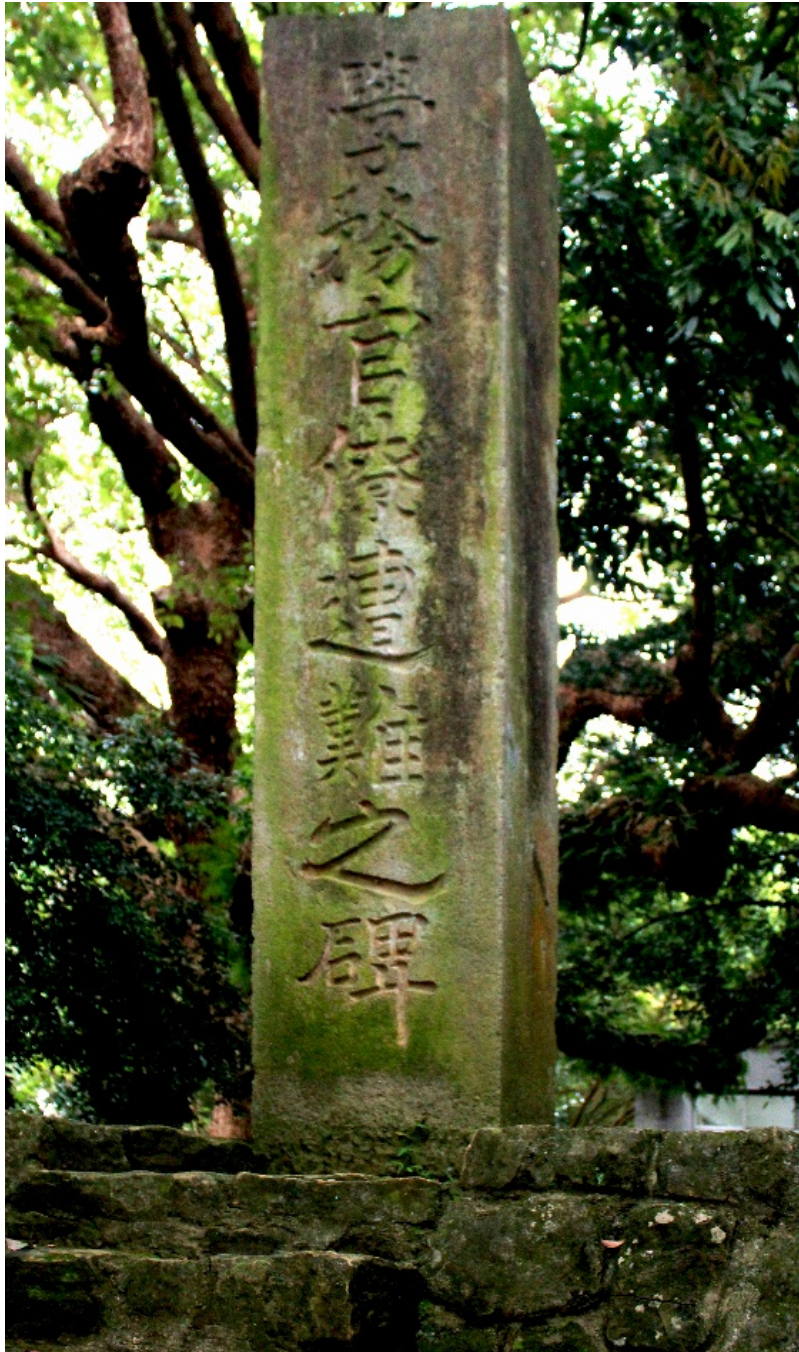 學務官僚遭難之碑